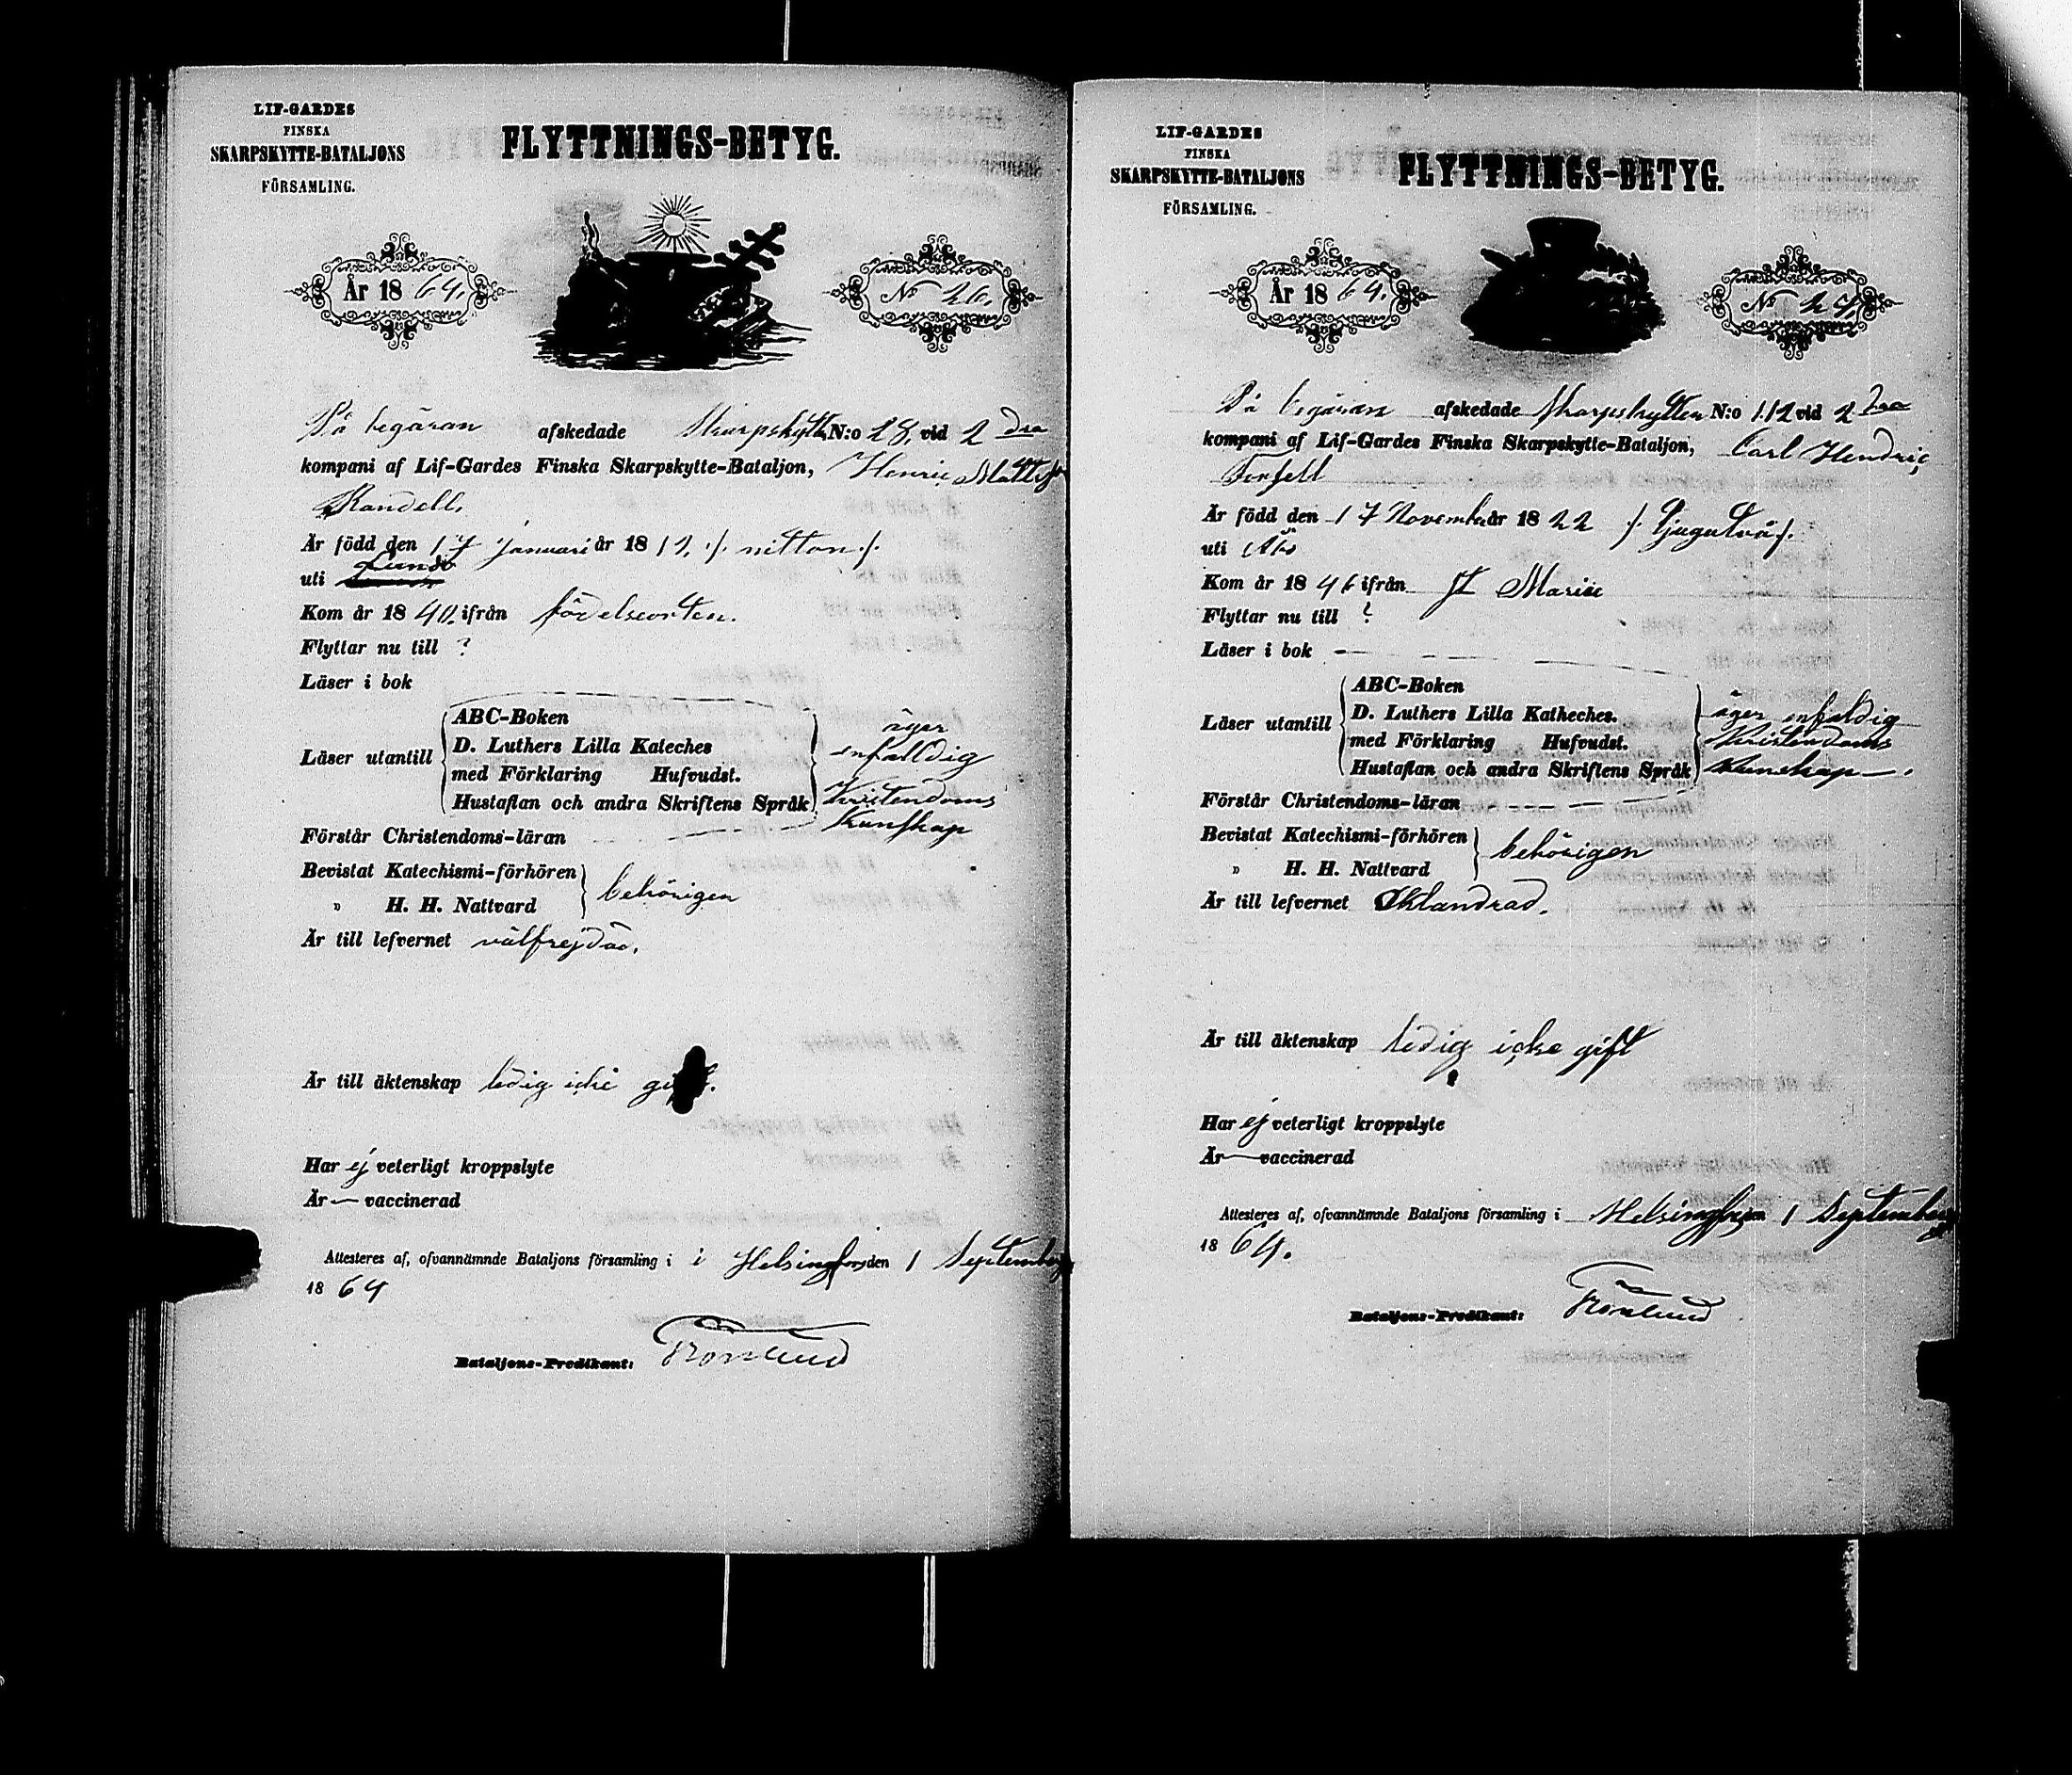 LIF-GARDES
FINSKA
SKARPSKYTTE-BATALJONS
FÖRSAMLING.
FLYTTNINGS-BETYG.
År 1864.
No 26.
På begäran afskedade Skarpskytt N:o 28 vid 2 dra
kompani af Lif-Gardes Finska Skarpskytte-Bataljon, Henric Matts
Randell.
Är född den 17 Januari år 1819 /. nitton /.
uti
Kom år 1840. ifrån födelseorten.
Flyttar nu till ?
Läser i bok
Läser utantill
ABC-Boken
D. Luthers Lilla Kateches
med Förklaring Hufvudst.
Hustaflan och andra Skriftens Språk
äger
enfaldig
Kristendoms
Kunskap
Förstår Christendoms-läran
Bevistat Katechismi-förhören
" H. H. Nattvard
behörigen
Är till lefvernet välfrejdad.
Är till äktenskap ledig icke
Har ej veterligt kroppslyte
Är — vaccinerad
Attesteres af, ofvannämnde Bataljons församling i i Helsingfors den 1 September
1864
Bataljons-Predikant:
LIF-GARDES
FINSKA
SKARPSKYTTE-BATALJONS
FÖRSAMLING.
FLYTTNINGS-BETYG.
År 1864.
No 27.
På begäran afskedade Skarpskytten N:o 112 vid 2 dra
kompani af Lif-Gardes Finska Skarpskytte-Bataljon, Carl Hendric
Forsell
Är född den 17 November år 1822 /. tjugutvå /.
uti Åbo
Kom år 1846 ifrån St Marie
Flyttar nu till ?
Läser i bok —
Läser utantill
ABC-Boken
D. Luthers Lilla Katheches.
med Förklaring Hufvudst.
Hustaflan och andra Skriftens Språk
äger enfaldig
Kristendoms
Kunskap —.
Förstår Christendoms-läran
Bevistat Katechismi-förhören
" H. H. Nattvard
behörigen
Är till lefvernet Oklandrad.
Är till äktenskap ledig icke gift
Har ej veterligt kroppslyte
Är — vaccinerad
Attesteres af, ofvannämnde Bataljons församling i Helsingfors 1 September
1864.
Bataljons-Predikant: